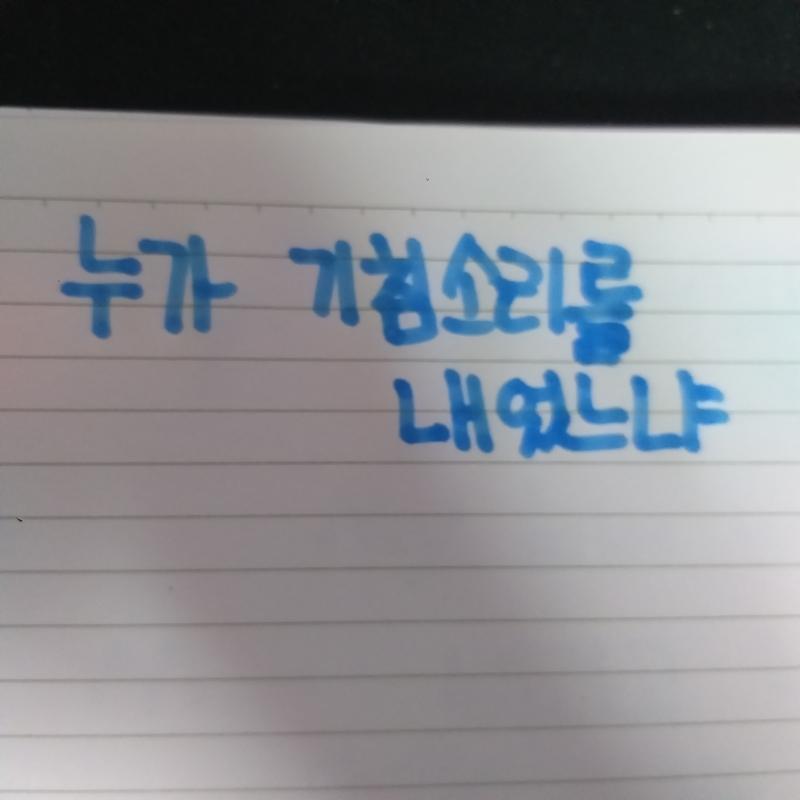 누가 기침소리를
내었느냐